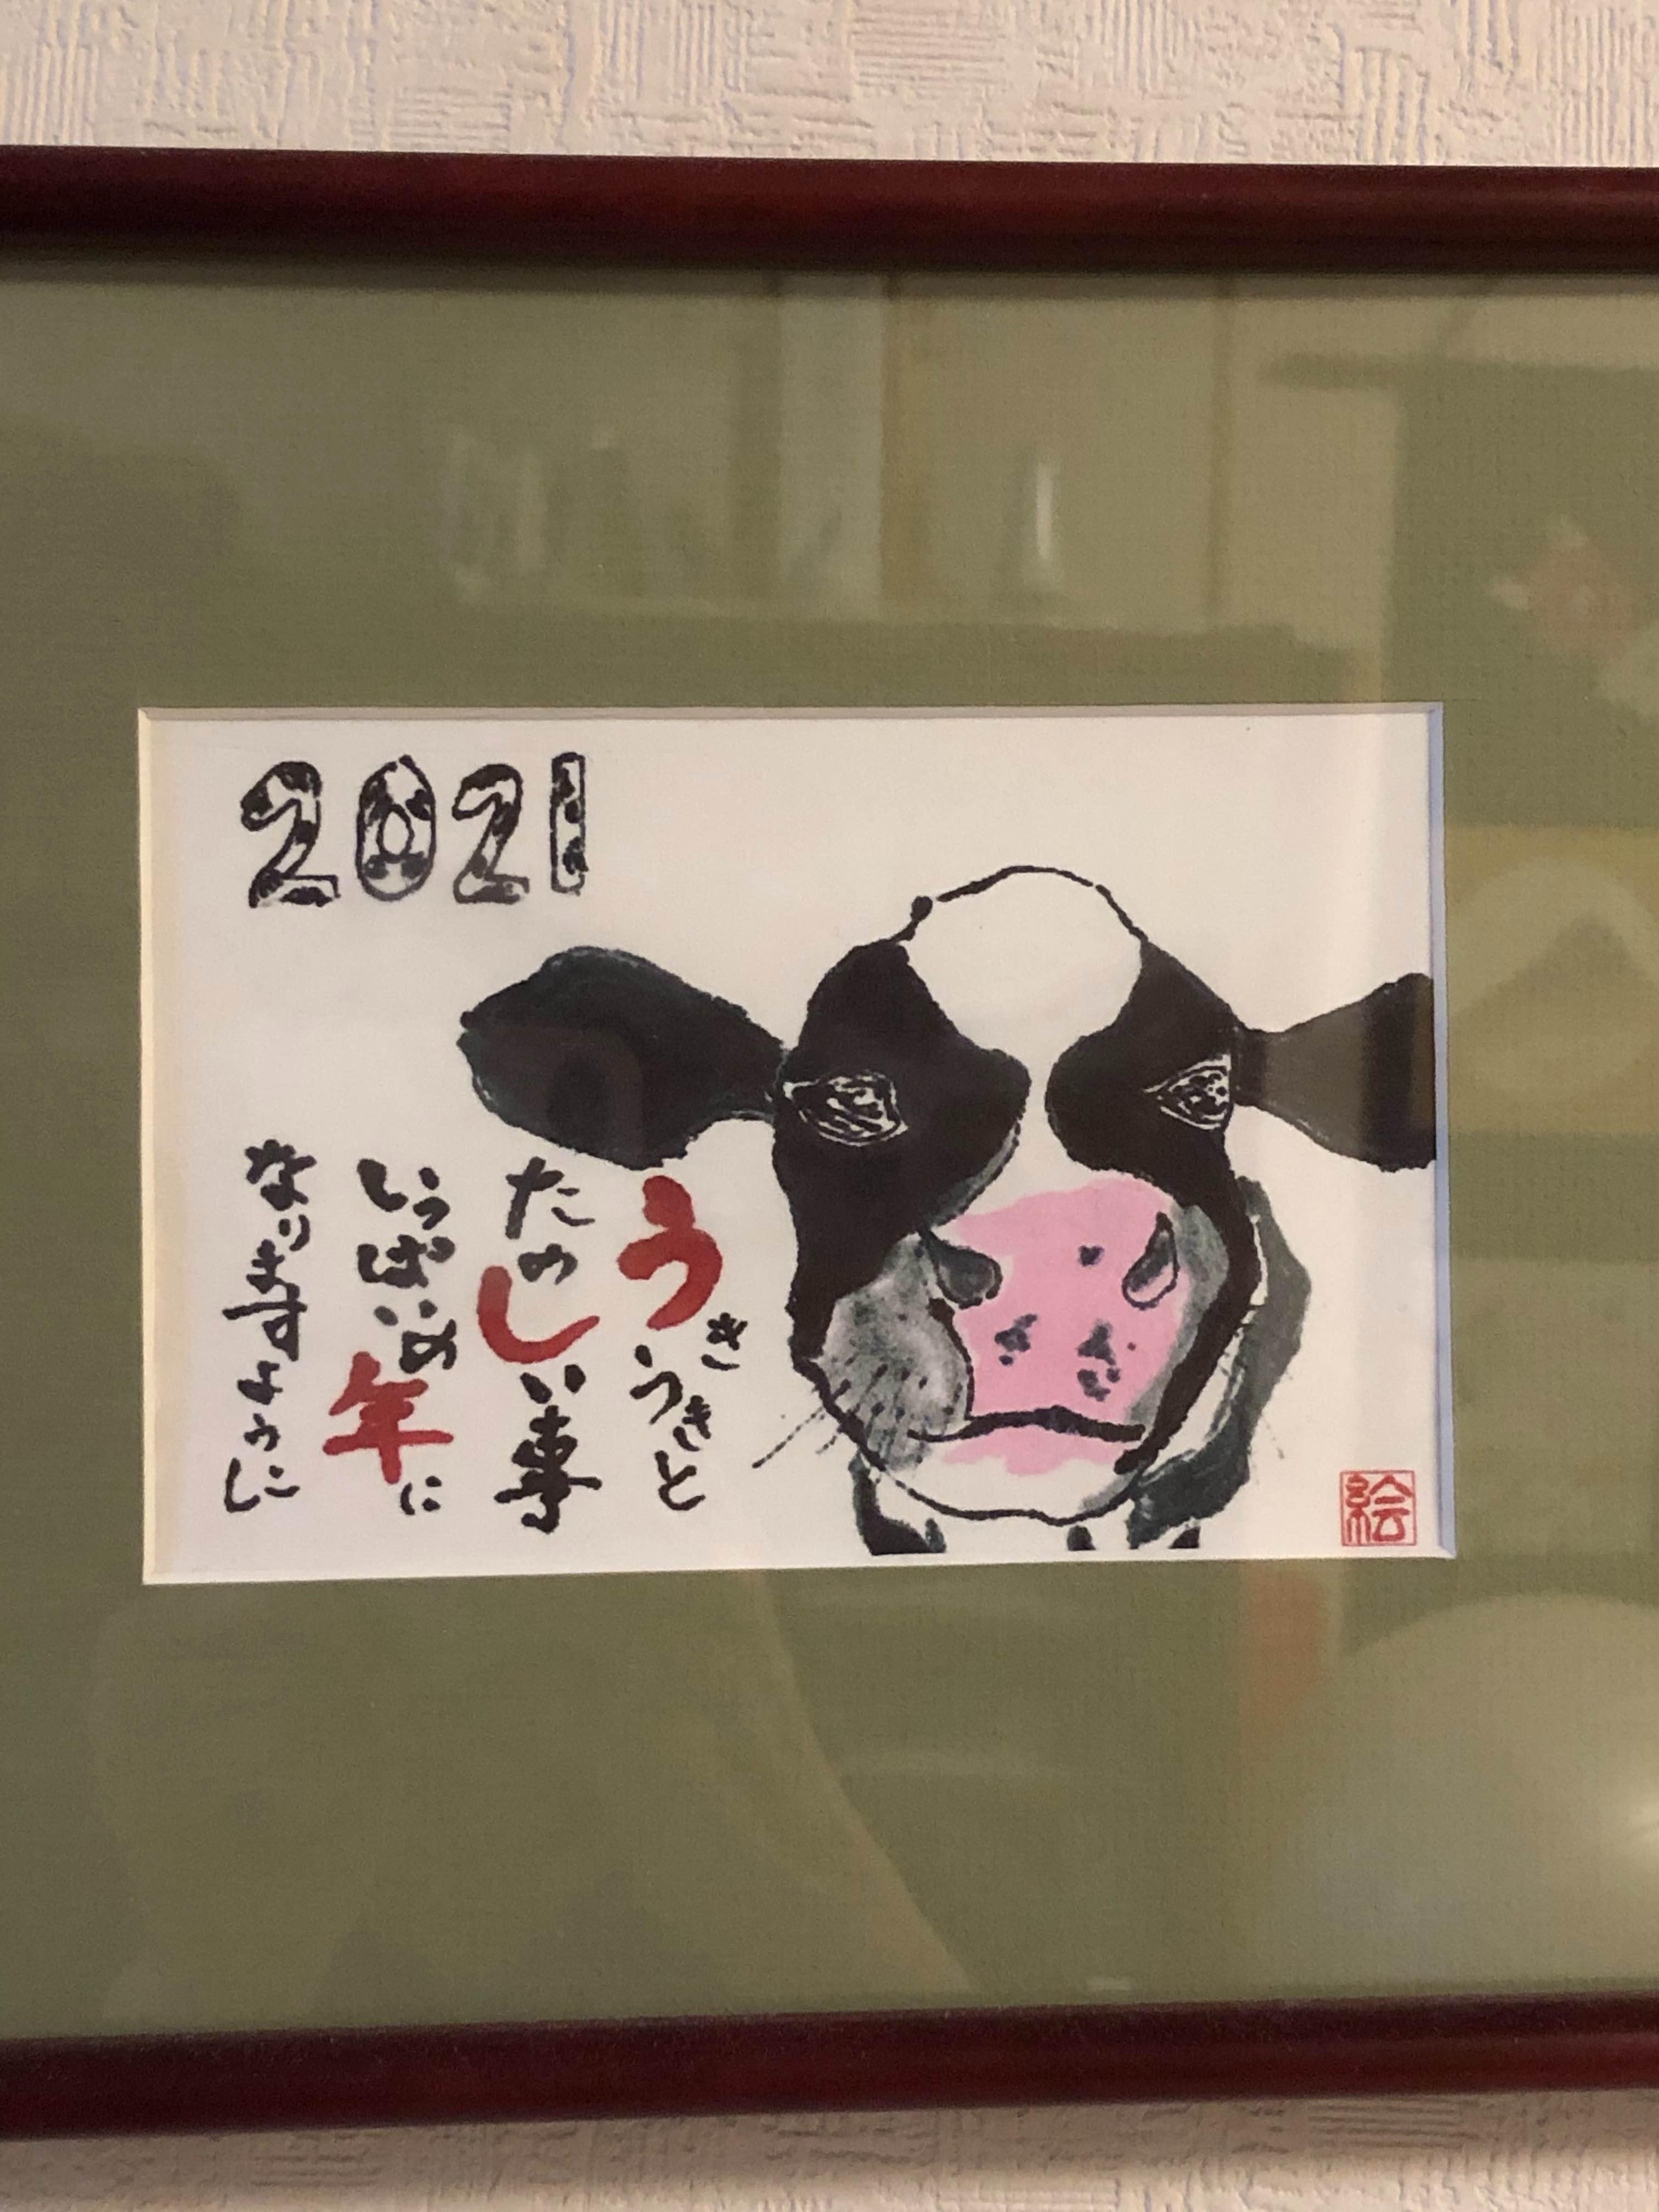 2021
うきうきと
たのしい事
いっぱいの年に
なりますように
絵